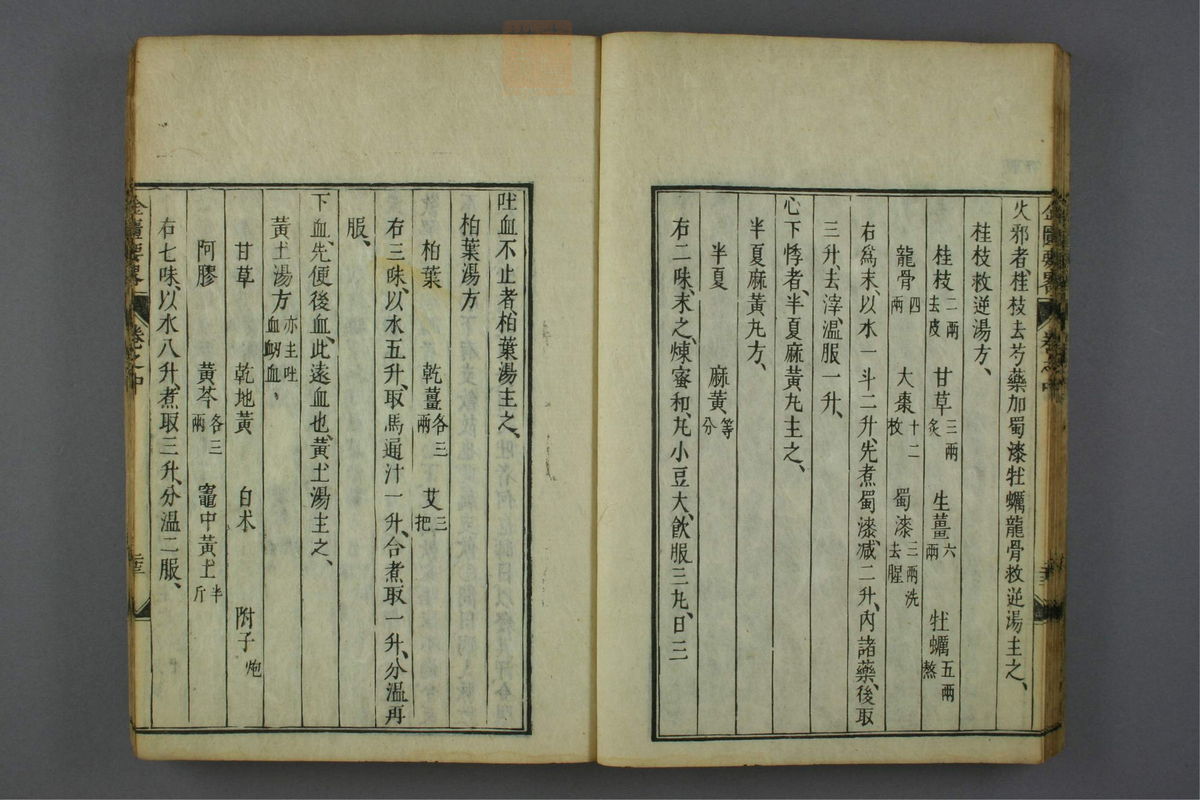 火邪者、桂枝去芍藥加蜀漆牡蠣龍骨救逆湯主之、
桂枝救逆湯方、
桂枝二兩去皮 甘草三兩炙 生薑六兩 牡蠣五兩熬
龍骨四兩 大棗十二枚 蜀漆三兩洗去腥
右爲末、以水一斗二升、先煮蜀漆、減二升、內諸藥、後取
三升、去滓、溫服一升、
心下悸者、半夏麻黃丸主之、
半夏麻黃丸方、
半夏 麻黃等分
右二味、末之、煉蜜和丸小豆大、飲服三丸、日三
金匱要畧 卷之中
吐血不止者、柏葉湯主之、
柏葉湯方
柏葉 乾薑各三兩 艾三把
右三味、以水五升、取馬通汁一升、合煮取一升、分溫再
服、
下血、先便後血、此遠血也、黃土湯主之、
黃土湯方亦主吐血衂血、
甘草 乾地黃 白朮 附子炮
阿膠 黃芩各三兩 竈中黃土半斤
右七味、以水八升、煮取三升、分溫二服、
金匱要畧 卷之中